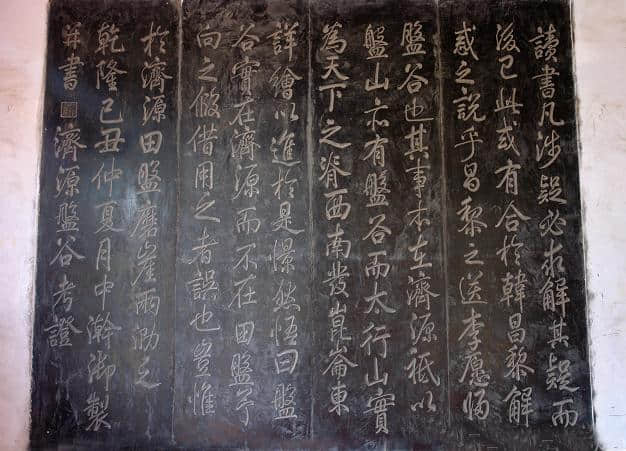 讀書凡涉疑必求解其疑而
後已此或有合於韓昌黎解
惑之說乎昌黎之送李愿歸
盤谷也其事本在濟源祗以
盤山亦有盤谷而太行山實
為天下之脊西南發崑崙東
詳繪以進於是憬然悟曰盤
谷實在濟源而不在田盤予
向之假借用之者誤也豈惟
於濟源田盤磨崖兩泐之
乾隆己丑仲夏月中澣御製
并書 濟源盤谷考證